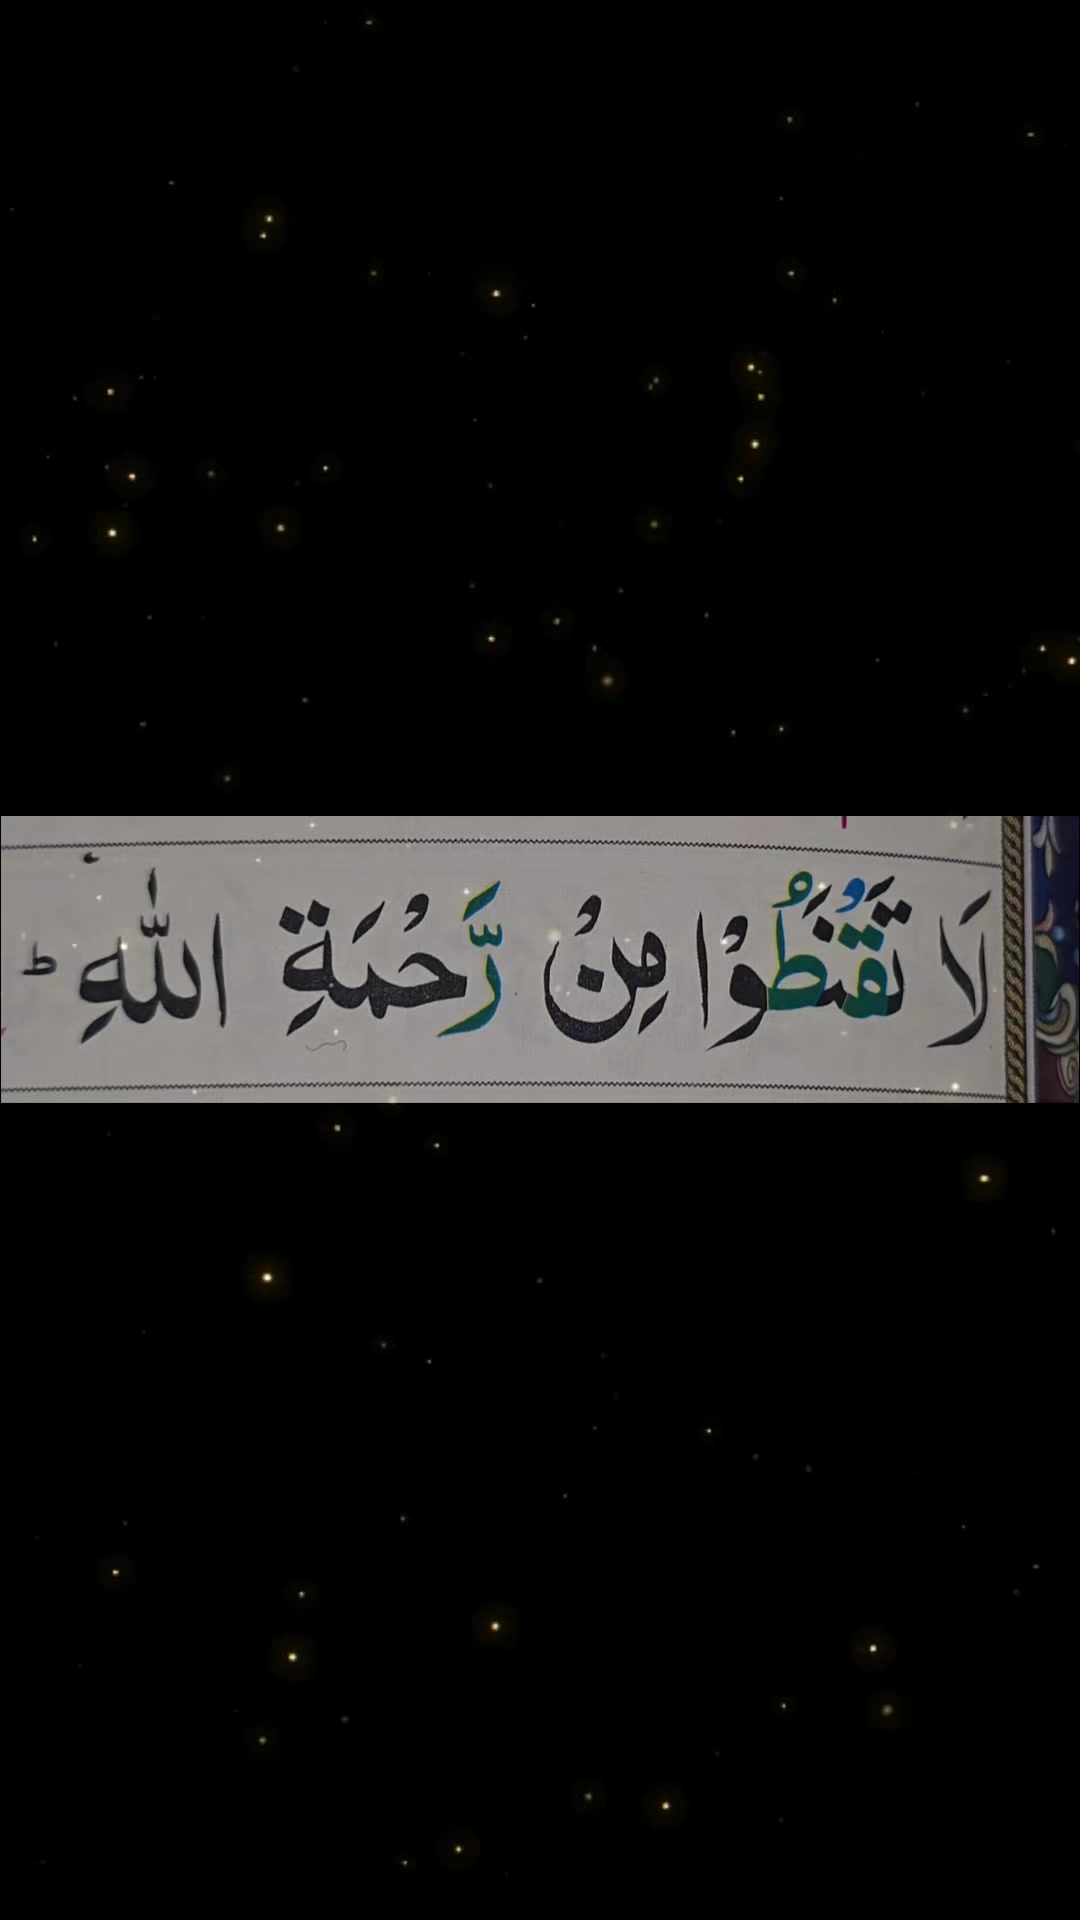 لَا تَقْنَطُوْا مِنْ رَّحْمَةِ اللّٰهِ ؕ